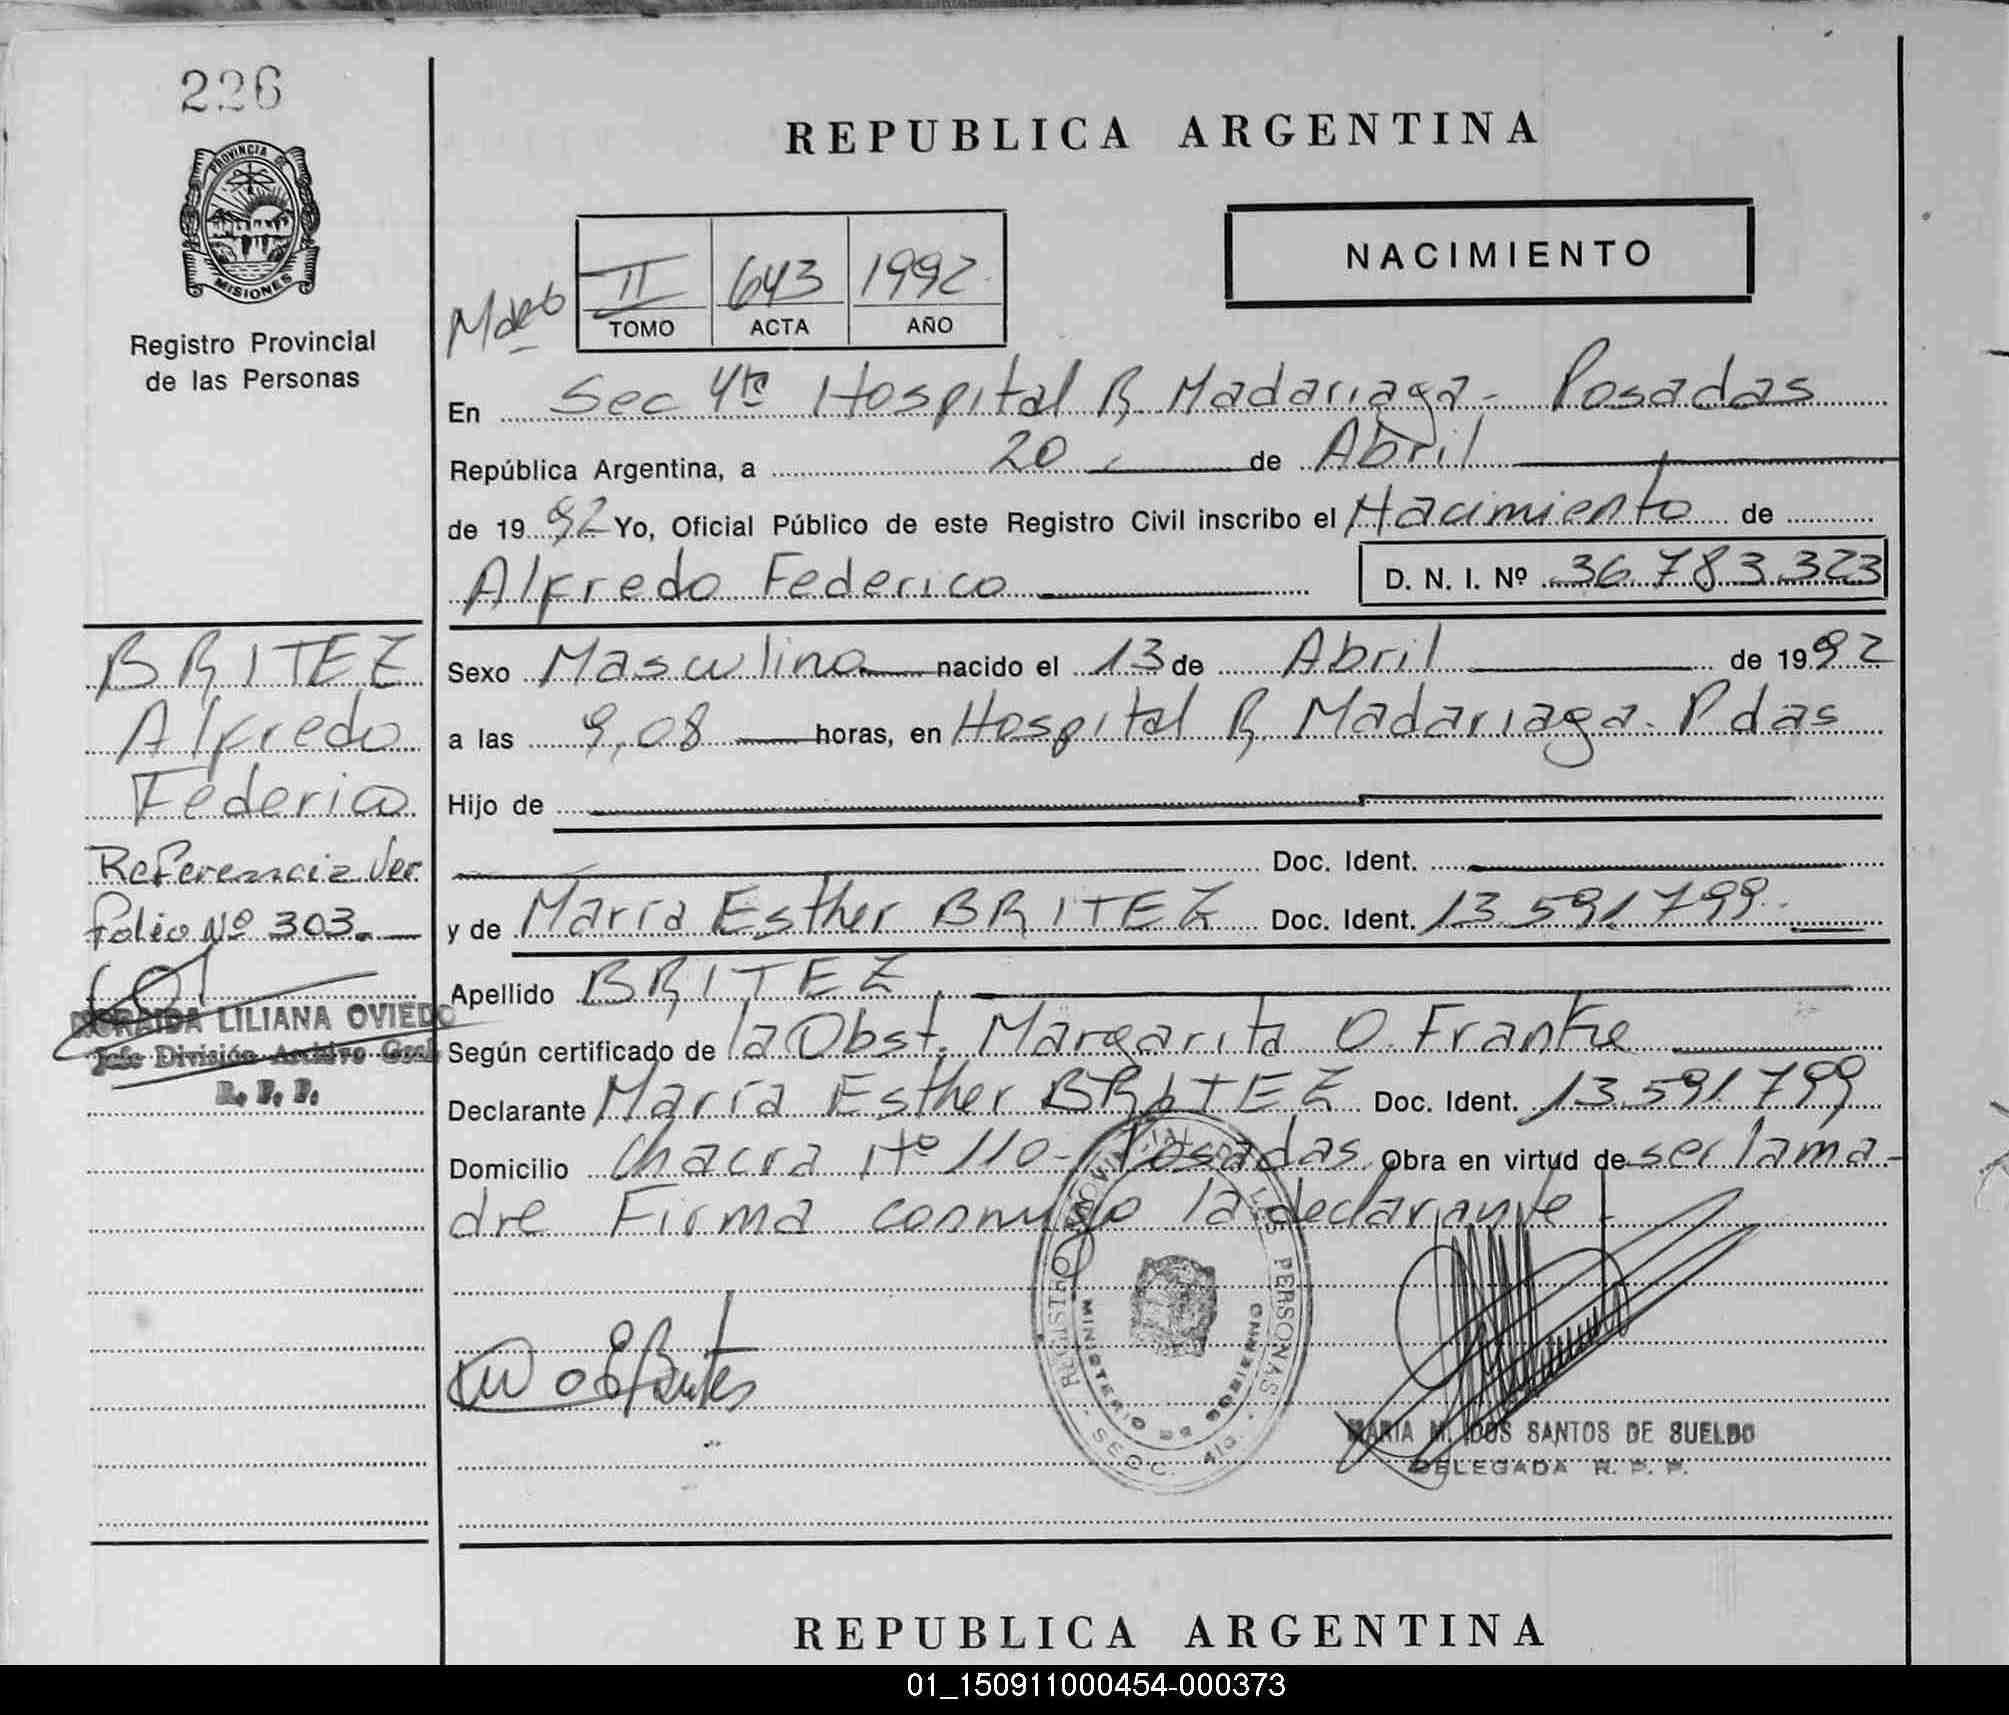 226
PROVINCIA DE
MISIONES
Registro Provincial
de las Personas
REPUBLICA ARGENTINA
NACIMIENTO
II 643 1992
TOMO ACTA AÑO
En Sec 4ta Hospital R. Madariaga - Posadas
República Argentina, a 20 de Abril
de 1992 Yo, Oficial Público de este Registro Civil inscribo el Nacimiento de
Alfredo Federico D. N. I. Nº 36.783.323
BRITEZ
Alfredo
Federico
Referencia Ver
Folio Nº 303.
NORAIDA LILIANA OVIEDO
Jefe División Archivo Gral
R. P. P.
Sexo Masculino nacido el 13 de Abril de 1992
a las 9,08 horas, en Hospital R. Madariaga. Pdas
Hijo de
Doc. Ident.
y de María Esther BRITEZ Doc. Ident. 13.591.799.
Apellido BRITEZ
Según certificado de la Obst. Margarita O. Franke
Declarante María Esther BRITEZ Doc. Ident. 13.591.799
Domicilio Chacra Nº 110 - Posadas Obra en virtud de ser la ma-
dre Firma conmigo la declarante
REGISTRO PROVINCIAL DE LAS PERSONAS
MINISTERIO DE GOBIERNO
MARIA M. DOS SANTOS DE SUELDO
DELEGADA R. P. P.
REPUBLICA ARGENTINA
01_150911000454-000373